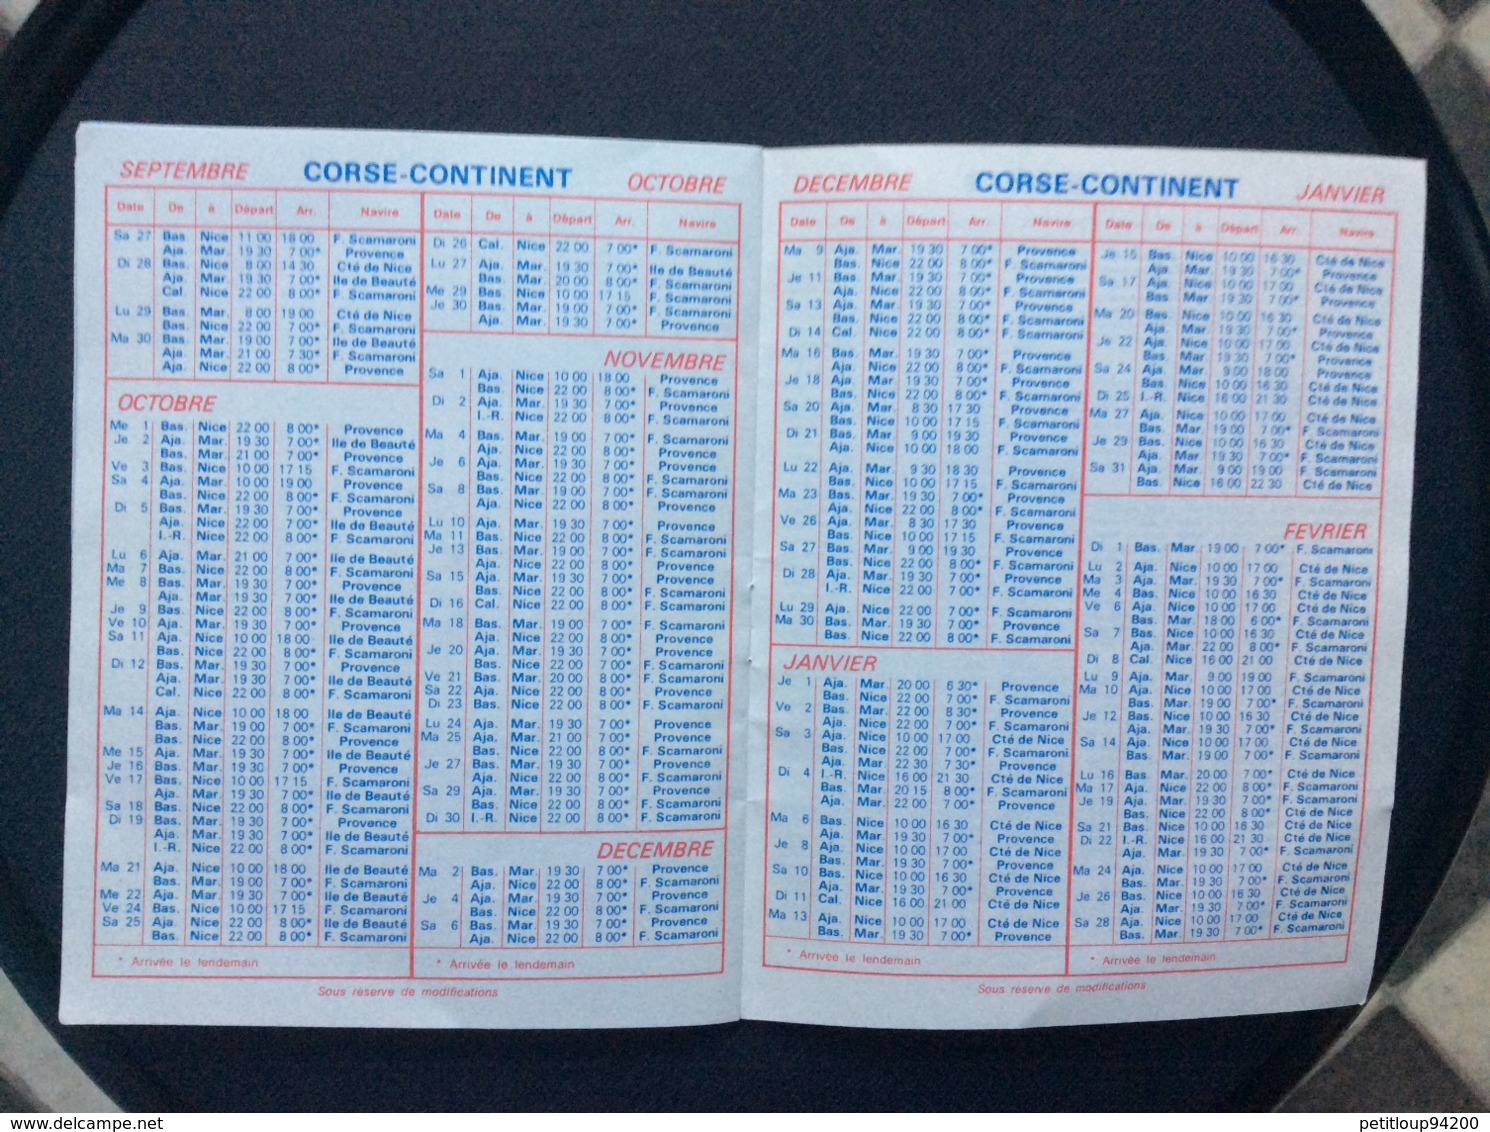 SEPTEMBRE CORSE-CONTINENT OCTOBRE
Date De à Départ Arr. Navire
Sa 27 Bas. Nice 11 00 18 00 F. Scamaroni
Aja. Mar. 19 30 7 00* Provence
Di 28 Bas. Nice 8 00 14 30 Cté de Nice
Aja. Mar. 19 30 7 00* Ile de Beauté
Cal. Nice 22 00 8 00* F. Scamaroni
Lu 29 Bas. Mar. 8 00 19 00 Cté de Nice
Bas. Nice 22 00 7 00* F. Scamaroni
Ma 30 Bas. Mar. 19 00 7 00* Ile de Beauté
Aja. Mar. 21 00 7 30* F. Scamaroni
Aja. Nice 22 00 8 00* Provence
OCTOBRE
Me 1 Bas. Nice 22 00 8 00* Provence
Je 2 Aja. Mar. 19 30 7 00* Ile de Beauté
Bas. Mar. 21 00 7 00* Provence
Ve 3 Bas. Nice 10 00 17 15 F. Scamaroni
Sa 4 Aja. Mar. 10 00 19 00 Provence
Bas. Nice 22 00 8 00* F. Scamaroni
Di 5 Bas. Mar. 19 30 7 00* Provence
Aja. Nice 22 00 7 00* Ile de Beauté
I.-R. Nice 22 00 8 00* F. Scamaroni
Lu 6 Aja. Mar. 21 00 7 00* Ile de Beauté
Ma 7 Bas. Nice 22 00 8 00* F. Scamaroni
Me 8 Bas. Mar. 19 30 7 00* Provence
Aja. Mar. 19 30 7 00* Ile de Beauté
Je 9 Bas. Nice 22 00 8 00* F. Scamaroni
Ve 10 Aja. Mar. 19 30 7 00* Provence
Sa 11 Aja. Nice 10 00 18 00 Ile de Beauté
Bas. Nice 22 00 8 00* F. Scamaroni
Di 12 Bas. Mar. 19 30 7 00* Provence
Aja. Mar. 19 30 7 00* Ile de Beauté
Cal. Nice 22 00 8 00* F. Scamaroni
Ma 14 Aja. Nice 10 00 18 00 Ile de Beauté
Bas. Mar. 19 00 7 00* F. Scamaroni
Bas. Nice 22 00 8 00* Provence
Me 15 Aja. Mar. 19 30 7 00* Ile de Beauté
Je 16 Bas. Mar. 19 30 7 00* Provence
Ve 17 Bas. Nice 10 00 17 15 F. Scamaroni
Aja. Mar. 19 30 7 00* Ile de Beauté
Sa 18 Bas. Nice 22 00 8 00* F. Scamaroni
Di 19 Bas. Mar. 19 30 7 00* Provence
Aja. Mar. 19 30 7 00* Ile de Beauté
I.-R. Nice 22 00 8 00* F. Scamaroni
Ma 21 Aja. Nice 10 00 18 00 Ile de Beauté
Bas. Mar. 19 00 7 00* F. Scamaroni
Me 22 Aja. Mar. 19 30 7 00* Ile de Beauté
Ve 24 Bas. Nice 10 00 17 15 F. Scamaroni
Sa 25 Aja. Nice 22 00 8 00* Ile de Beauté
Bas. Nice 22 00 8 00* F. Scamaroni
* Arrivée le lendemain
Date De à Départ Arr. Navire
Di 26 Cal. Nice 22 00 7 00* F. Scamaroni
Lu 27 Aja. Mar. 19 30 7 00* Ile de Beauté
Bas. Mar. 20 00 8 00* F. Scamaroni
Me 29 Bas. Nice 10 00 17 15 F. Scamaroni
Je 30 Bas. Mar. 19 00 7 00* F. Scamaroni
Aja. Mar. 19 30 7 00* Provence
NOVEMBRE
Sa 1 Aja. Nice 10 00 18 00 Provence
Bas. Nice 22 00 8 00* F. Scamaroni
Di 2 Aja. Mar. 19 30 7 00* Provence
I.-R. Nice 22 00 8 00* F. Scamaroni
Ma 4 Bas. Mar. 19 00 7 00* F. Scamaroni
Aja. Nice 22 00 8 00* Provence
Je 6 Aja. Mar. 19 30 7 00* Provence
Bas. Nice 22 00 8 00* F. Scamaroni
Sa 8 Bas. Mar. 19 00 7 00* F. Scamaroni
Aja. Nice 22 00 8 00* Provence
Lu 10 Aja. Mar. 19 30 7 00* Provence
Ma 11 Bas. Nice 22 00 8 00* F. Scamaroni
Je 13 Bas. Mar. 19 00 7 00* F. Scamaroni
Aja. Nice 22 00 8 00* Provence
Sa 15 Aja. Mar. 19 30 7 00* Provence
Bas. Nice 22 00 8 00* F. Scamaroni
Di 16 Cal. Nice 22 00 8 00* F. Scamaroni
Ma 18 Bas. Mar. 19 00 7 00* F. Scamaroni
Aja. Nice 22 00 8 00* Provence
Je 20 Aja. Mar. 19 30 7 00* Provence
Bas. Nice 22 00 8 00* F. Scamaroni
Ve 21 Bas. Mar. 20 00 8 00* Provence
Sa 22 Aja. Nice 22 00 8 00* Provence
Di 23 Bas. Nice 22 00 8 00* F. Scamaroni
Lu 24 Aja. Mar. 19 30 7 00* Provence
Ma 25 Aja. Mar. 21 00 7 00* F. Scamaroni
Bas. Nice 22 00 8 00* Provence
Je 27 Bas. Mar. 19 30 7 00* Provence
Aja. Nice 22 00 8 00* F. Scamaroni
Sa 29 Aja. Mar. 19 30 7 00* Provence
Bas. Nice 22 00 8 00* F. Scamaroni
Di 30 I.-R. Nice 22 00 8 00* F. Scamaroni
DECEMBRE
Ma 2 Bas. Mar. 19 30 7 00* Provence
Aja. Nice 22 00 8 00* F. Scamaroni
Je 4 Aja. Mar. 19 30 7 00* Provence
Bas. Nice 22 00 8 00* F. Scamaroni
Sa 6 Bas. Mar. 19 30 7 00* Provence
Aja. Nice 22 00 8 00* F. Scamaroni
* Arrivée le lendemain
Sous réserve de modifications
DECEMBRE CORSE-CONTINENT JANVIER
Date De à Départ Arr. Navire
Ma 9 Aja. Mar. 19 30 7 00* Provence
Bas. Nice 22 00 8 00* F. Scamaroni
Je 11 Bas. Mar. 19 30 7 00* Provence
Aja. Nice 22 00 8 00* F. Scamaroni
Sa 13 Aja. Mar. 19 30 7 00* Provence
Bas. Nice 22 00 8 00* F. Scamaroni
Di 14 Cal. Nice 22 00 8 00* F. Scamaroni
Ma 16 Bas. Mar. 19 30 7 00* Provence
Aja. Nice 22 00 8 00* F. Scamaroni
Je 18 Aja. Mar. 19 30 7 00* Provence
Bas. Nice 22 00 8 00* F. Scamaroni
Sa 20 Aja. Mar. 8 30 17 30 Provence
Bas. Nice 10 00 17 15 F. Scamaroni
Di 21 Bas. Mar. 9 00 19 30 Provence
Aja. Nice 10 00 18 00 F. Scamaroni
Lu 22 Aja. Mar. 9 30 18 30 Provence
Bas. Nice 10 00 17 15 F. Scamaroni
Ma 23 Bas. Mar. 19 30 7 00* Provence
Aja. Nice 22 00 8 00* F. Scamaroni
Ve 26 Aja. Mar. 8 30 17 30 Provence
Bas. Nice 10 00 17 15 F. Scamaroni
Sa 27 Bas. Mar. 9 00 19 30 Provence
Bas. Nice 22 00 8 00* F. Scamaroni
Di 28 Aja. Mar. 19 30 7 00* Provence
I.-R. Nice 22 00 8 00* F. Scamaroni
Lu 29 Aja. Nice 22 00 7 00* F. Scamaroni
Ma 30 Bas. Mar. 19 30 7 00* Provence
Bas. Nice 22 00 8 00* F. Scamaroni
JANVIER
Je 1 Aja. Mar. 20 00 6 30* Provence
Bas. Nice 22 00 7 00* F. Scamaroni
Ve 2 Bas. Mar. 22 00 8 30* Provence
Aja. Nice 22 00 7 00* F. Scamaroni
Sa 3 Aja. Nice 10 00 17 00 Cté de Nice
Bas. Nice 22 00 7 00* F. Scamaroni
Aja. Mar. 22 30 7 30* Provence
Di 4 I.-R. Nice 16 00 21 30 Cté de Nice
Bas. Mar. 20 15 8 00* F. Scamaroni
Aja. Mar. 22 00 7 00* Provence
Ma 6 Bas. Nice 10 00 16 30 Cté de Nice
Aja. Mar. 19 30 7 00* Provence
Je 8 Aja. Nice 10 00 17 00 Cté de Nice
Bas. Mar. 19 30 7 00* Provence
Sa 10 Bas. Nice 10 00 16 30 Cté de Nice
Aja. Mar. 19 30 7 00* Provence
Di 11 Cal. Nice 16 00 21 00 Cté de Nice
Ma 13 Aja. Nice 10 00 17 00 Cté de Nice
Bas. Mar. 19 30 7 00* Provence
* Arrivée le lendemain
Date De à Départ Arr. Navire
Je 15 Bas. Nice 10 00 16 30 Cté de Nice
Aja. Mar. 19 30 7 00* Provence
Sa 17 Aja. Nice 10 00 17 00 Cté de Nice
Bas. Mar. 19 30 7 00* Provence
Ma 20 Bas. Nice 10 00 16 30 Cté de Nice
Aja. Mar. 19 30 7 00* Provence
Je 22 Aja. Nice 10 00 17 00 Cté de Nice
Bas. Mar. 19 30 7 00* Provence
Sa 24 Aja. Mar. 9 00 18 00 Provence
Bas. Nice 10 00 16 30 Cté de Nice
Di 25 I.-R. Nice 16 00 21 30 Cté de Nice
Ma 27 Aja. Nice 10 00 17 00 Cté de Nice
Bas. Mar. 19 00 7 00* F. Scamaroni
Je 29 Bas. Nice 10 00 16 30 Cté de Nice
Aja. Mar. 19 30 7 00* F. Scamaroni
Sa 31 Aja. Mar. 9 00 19 00 F. Scamaroni
Bas. Nice 16 00 22 30 Cté de Nice
FEVRIER
Di 1 Bas. Mar. 19 00 7 00* F. Scamaroni
Lu 2 Aja. Nice 10 00 17 00 Cté de Nice
Ma 3 Aja. Mar. 19 30 7 00* F. Scamaroni
Me 4 Bas. Nice 10 00 16 30 Cté de Nice
Ve 6 Aja. Nice 10 00 17 00 Cté de Nice
Bas. Mar. 18 00 6 00* F. Scamaroni
Sa 7 Bas. Nice 10 00 16 30 Cté de Nice
Aja. Mar. 22 00 8 00* F. Scamaroni
Di 8 Cal. Nice 16 00 21 00 Cté de Nice
Lu 9 Aja. Mar. 9 00 19 00 F. Scamaroni
Ma 10 Aja. Nice 10 00 17 00 Cté de Nice
Bas. Mar. 19 00 7 00* F. Scamaroni
Je 12 Bas. Nice 10 00 16 30 Cté de Nice
Aja. Mar. 19 30 7 00* F. Scamaroni
Sa 14 Aja. Nice 10 00 17 00 Cté de Nice
Bas. Mar. 19 00 7 00* F. Scamaroni
Lu 16 Bas. Mar. 20 00 7 00* Cté de Nice
Ma 17 Aja. Nice 22 00 8 00* F. Scamaroni
Je 19 Aja. Mar. 19 30 7 00* Cté de Nice
Bas. Nice 22 00 8 00* Cté de Nice
Sa 21 Bas. Nice 10 00 16 30 Cté de Nice
Di 22 I.-R. Nice 16 00 21 30 Cté de Nice
Aja. Mar. 19 30 7 00* F. Scamaroni
Ma 24 Aja. Nice 10 00 17 00 Cté de Nice
Bas. Mar. 19 30 7 00* F. Scamaroni
Je 26 Bas. Nice 10 00 16 30 Cté de Nice
Aja. Mar. 19 30 7 00* F. Scamaroni
Sa 28 Aja. Nice 10 00 17 00 Cté de Nice
Bas. Mar. 19 30 7 00* F. Scamaroni
* Arrivée le lendemain
Sous réserve de modifications
www.delcampe.net
petitloup94200